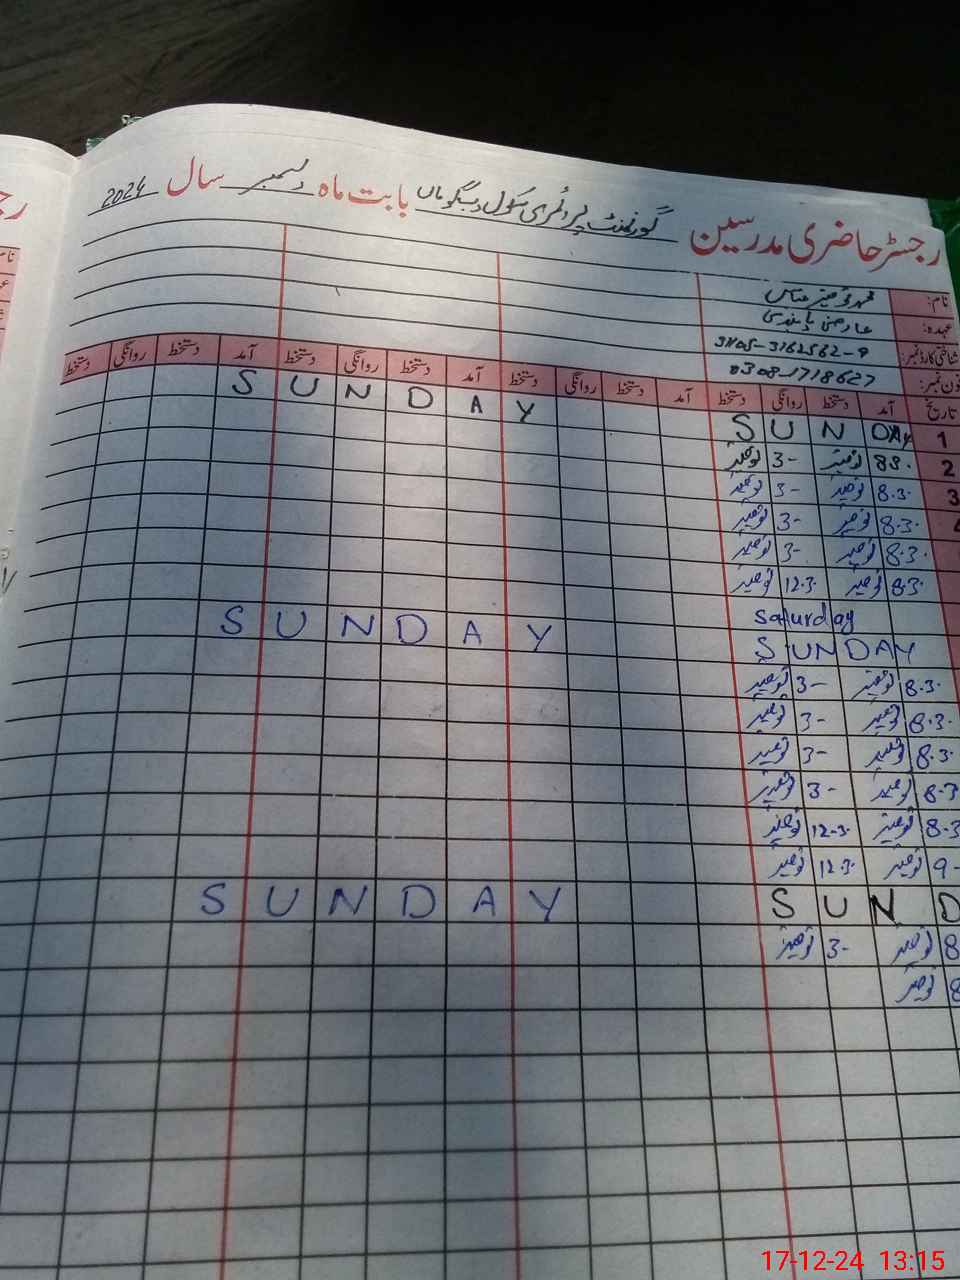 رجسٹر حاضری مدرسین گورنمنٹ پرائمری سکول بابت ماہ دسمبر سال 2024
نام: محمد توصیر عباس
عہدہ: عارضی
شناختی کارڈ نمبر: 31105-3162562-9
فون نمبر: 0308-1718627
تاریخ آمد دستخط روانگی دستخط آمد دستخط روانگی دستخط آمد دستخط روانگی دستخط آمد دستخط روانگی دستخط
1 SUNDAY SUNDAY
2 8.30 توصیر 3-
3 8.30 توصیر 3- توصیر
4 8.30 توصیر 3- توصیر
8.30 توصیر 3- توصیر
8.30 توصیر 12.30 توصیر
Saturday
SUNDAY SUNDAY
8.30 توصیر 3- توصیر
8.30 توصیر 3- توصیر
8.30 توصیر 3- توصیر
8.3 توصیر 3- توصیر
8.3 توصیر 12.30 توصیر
9- توصیر 12.30 توصیر
SUND SUNDAY
8 توصیر 3- توصیر
8 توصیر
17-12-24 13:15